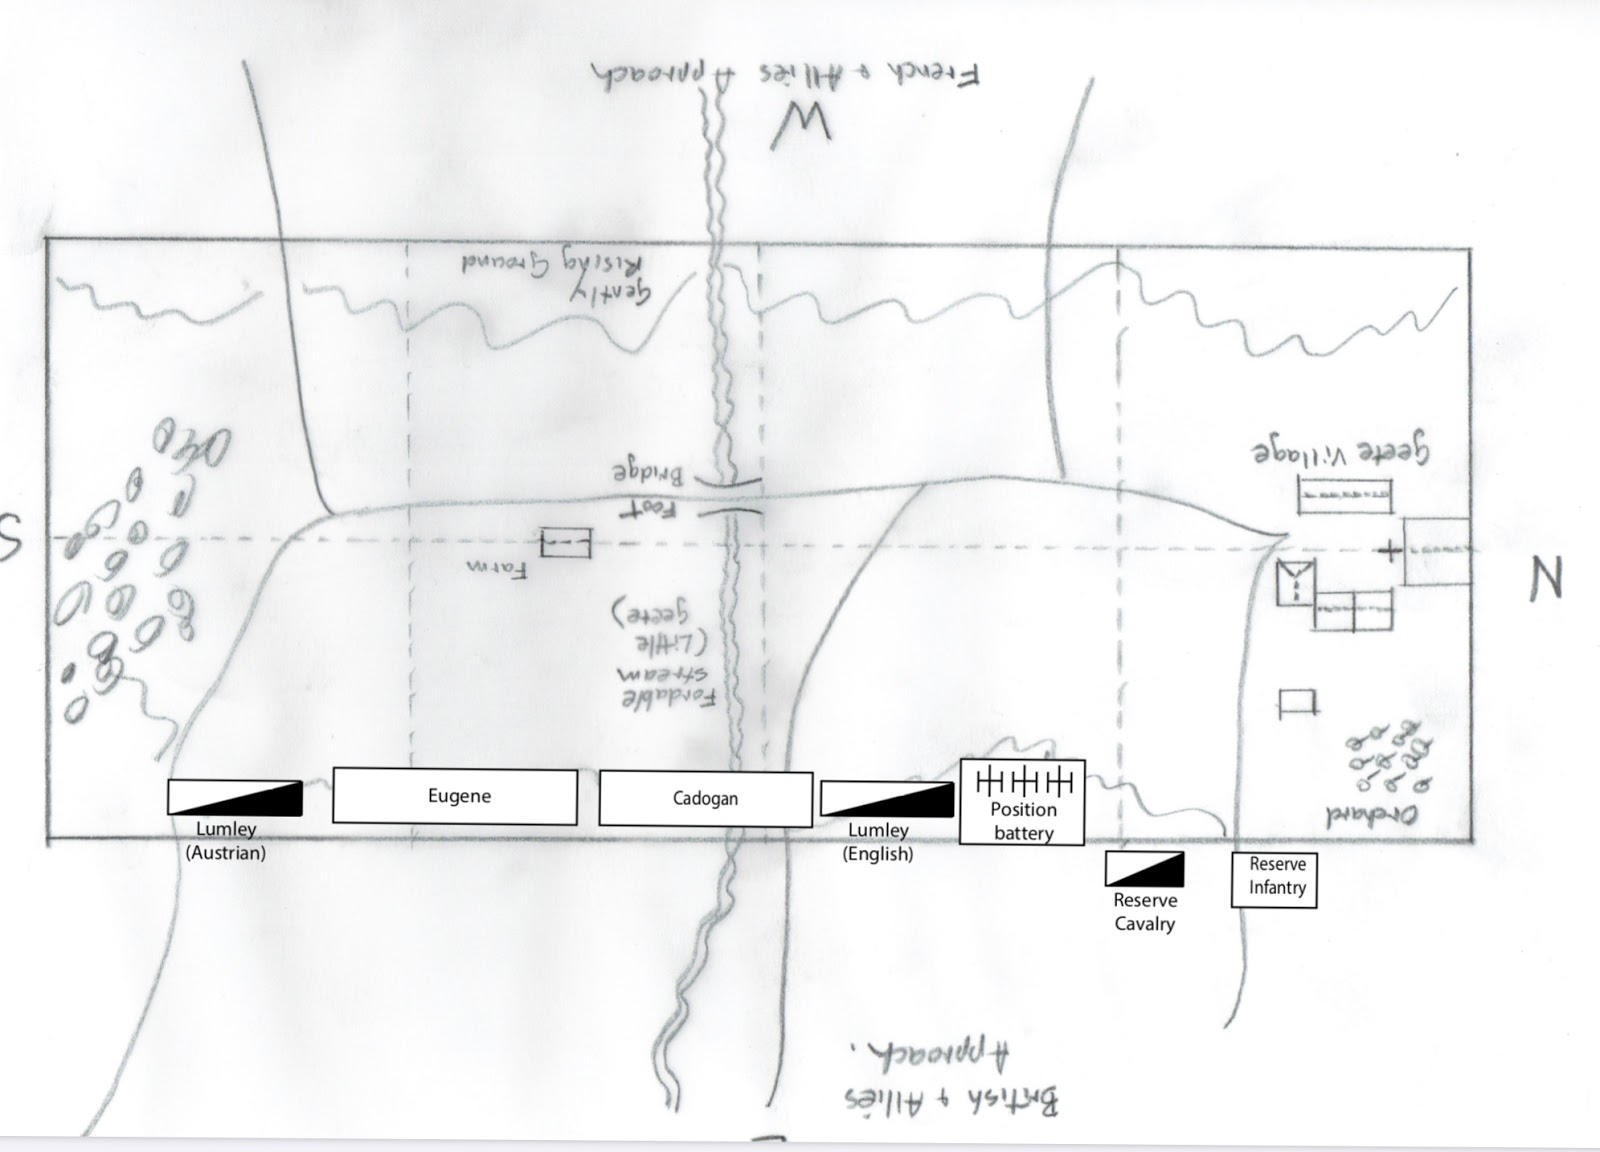 French & Allies Approach
W
Gently
Rising Ground
Geete Village
Bridge
Foot
S
Farm
N
Fordable
stream
(Little
geete)
Orchard
Eugene
Cadogan
Lumley
(Austrian)
Lumley
(English)
Position
battery
Reserve
Cavalry
Reserve
Infantry
British & Allies
Approach.